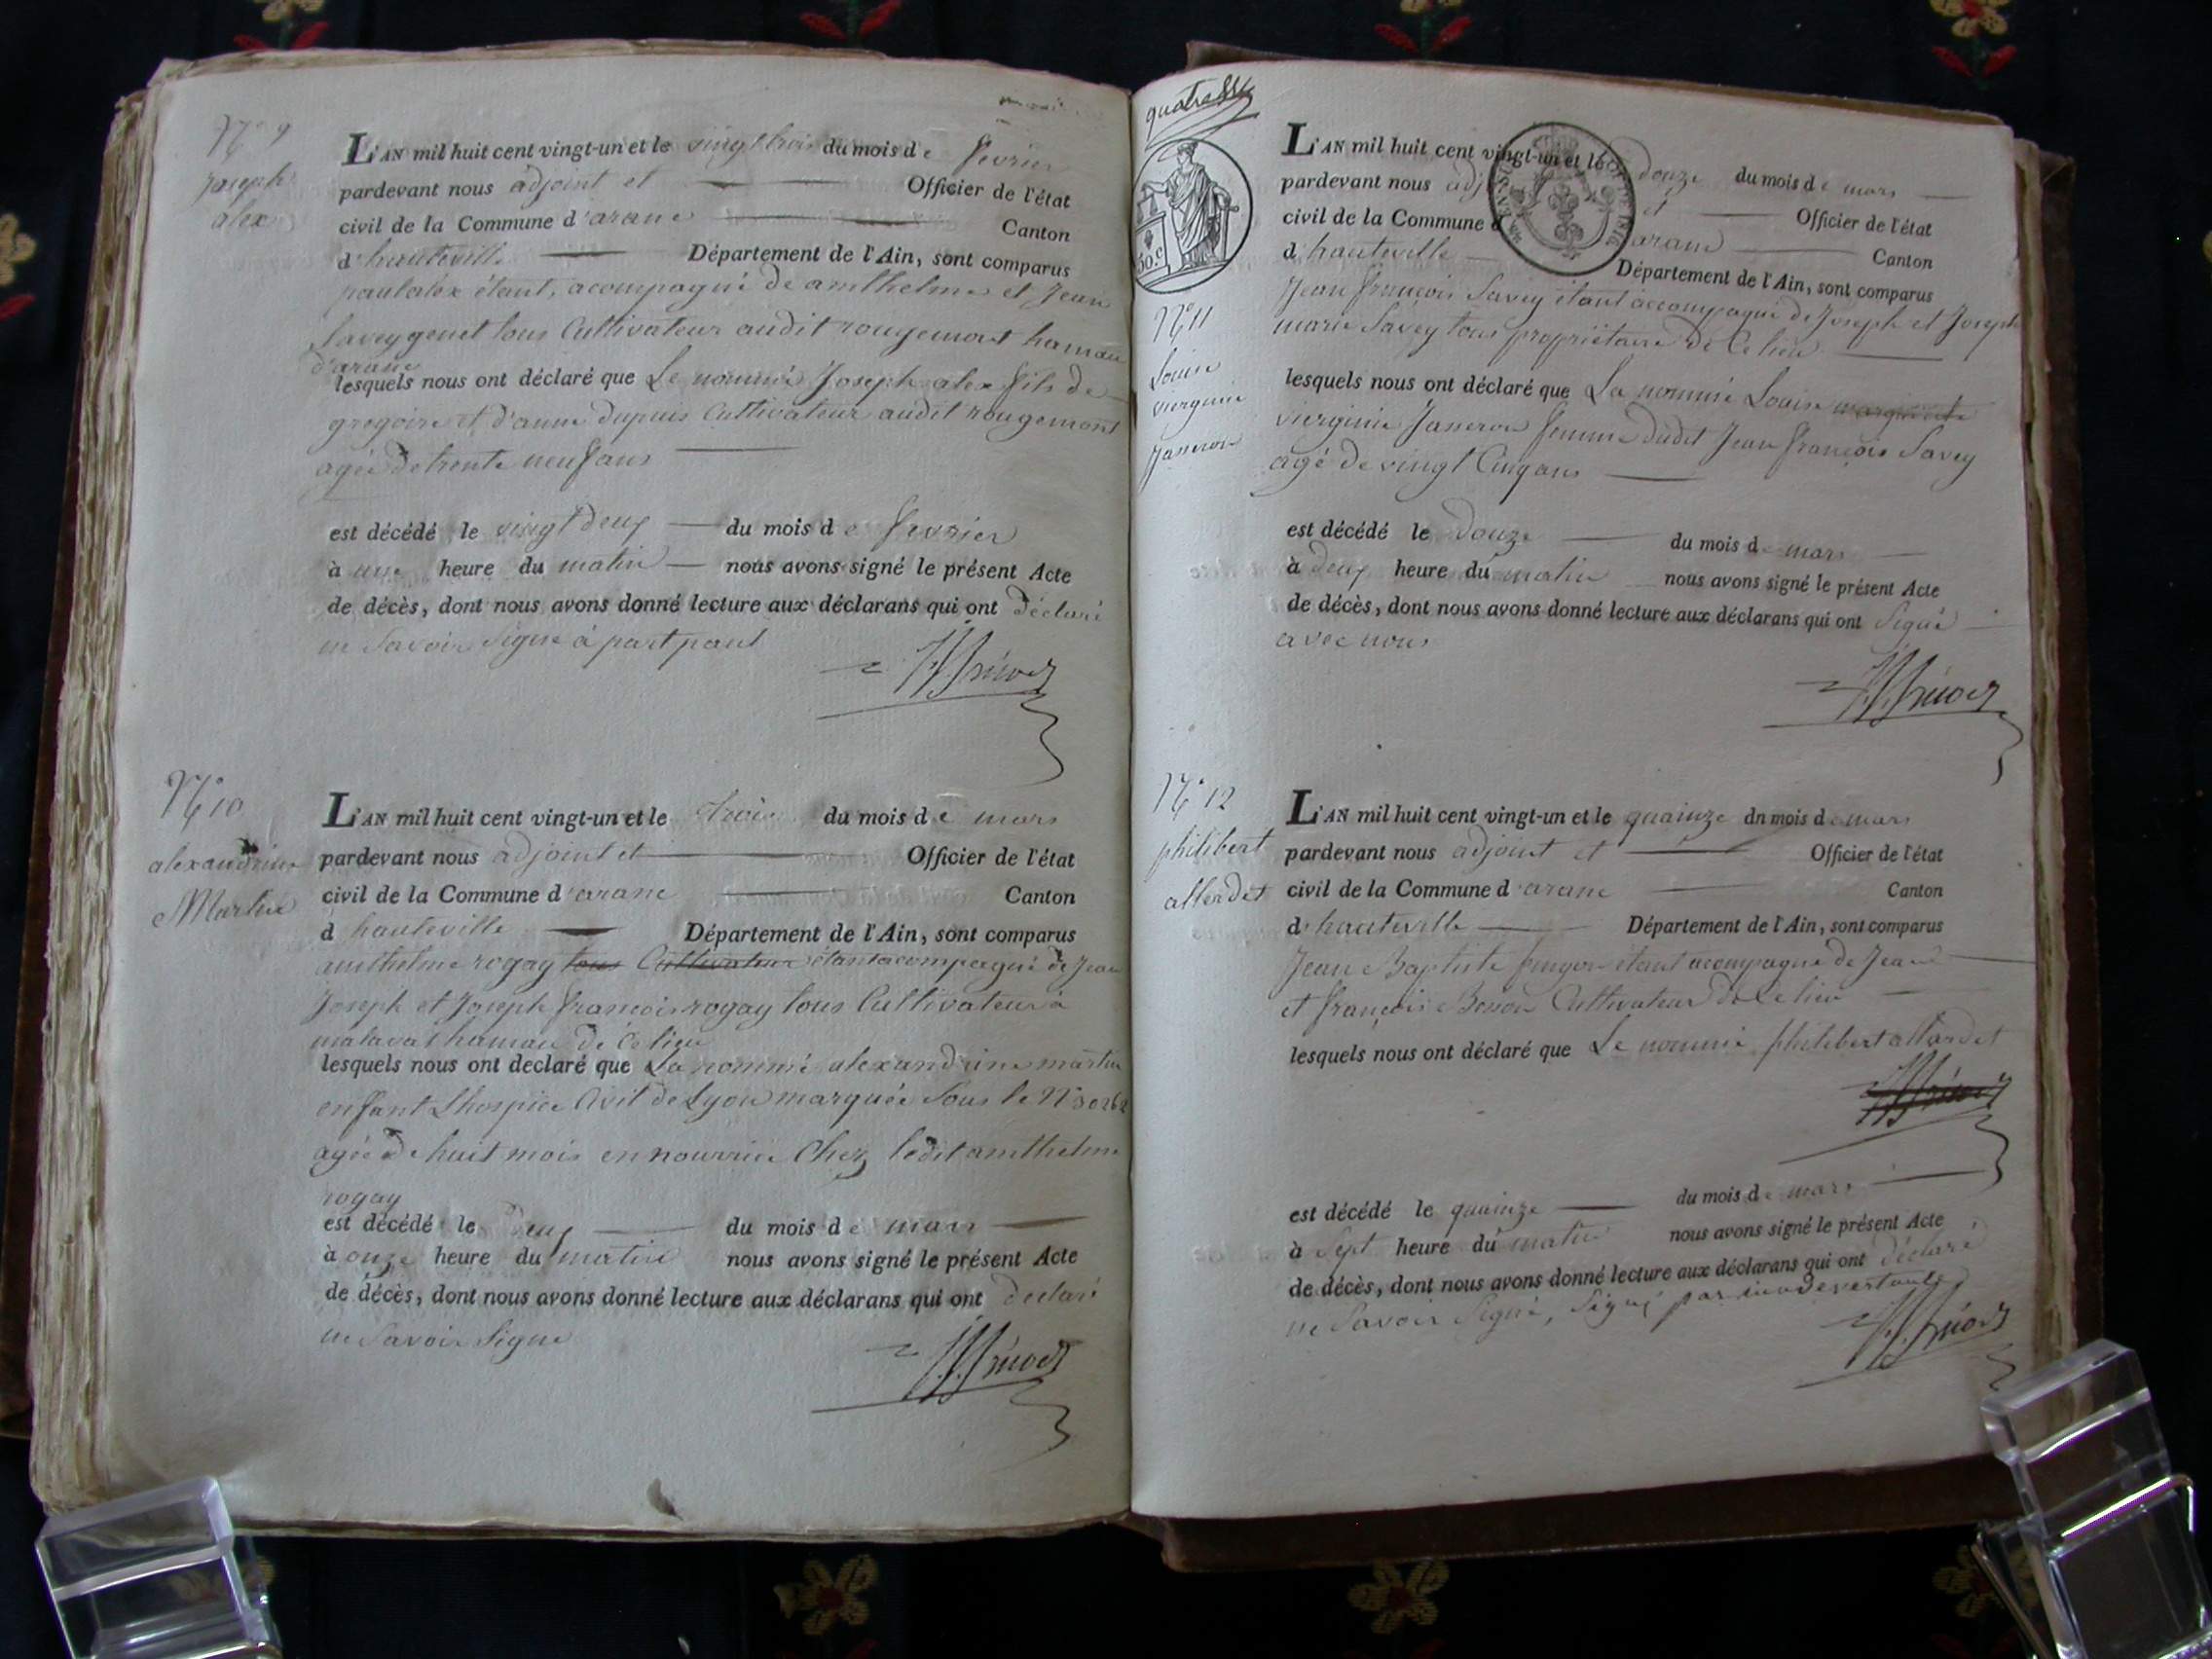 N.° 9
Joseph
alex
L'AN mil huit cent vingt-un et le vingt trois du mois de fevrier
pardevant nous adjoint et Officier de l'état
civil de la Commune d'arane Canton
d'hauteville Département de l'Ain, sont comparus
paul alex étant, acompagné de amthelme et Jean
Savey genet tous Cultivateur audit rougemont hamau
d'arane
lesquels nous ont déclaré que Le nommé Joseph alex fils de
gregoire et d'anne dupuis Cultivateur audit rougemont
agée de trente neuf ans
est décédé le vingt deux du mois de fevrier
à une heure du matin nous avons signé le présent Acte
de décès, dont nous avons donné lecture aux déclarans qui ont déclaré
ne Savoir Signe à part paul
N.° 10
alexandrine
Martin
L'AN mil huit cent vingt-un et le trois du mois de mars
pardevant nous adjoint et Officier de l'état
civil de la Commune d'arane Canton
d hauteville Département de l'Ain, sont comparus
amthelme rogay tous Cultivateur étant acompagné de Jean
Joseph et Joseph francois rogay tous Cultivateur à
malaval hamau de Ce lieu
lesquels nous ont declaré que La nommé alexandrine martin
enfant Lhospice Civil de Lyon marquée Sous le N.° 30262
agée de huit mois en nourrice Chez ledit amthelme
rogay
est décédé le deux du mois de mars
à onze heure du matin nous avons signé le présent Acte
de décès, dont nous avons donné lecture aux déclarans qui ont declaré
ne Savoir Signe
quatre
50.c
N.° 11
Louise
vierginie
Janeron
L'AN mil huit cent vingt-un et le douze du mois de mars
pardevant nous adj et Officier de l'état
civil de la Commune d arane Canton
d'hauteville Département de l'Ain, sont comparus
Jean françois Savey étant accompagné de Joseph et Joseph
marie Savey tous propriétaire de Ce lieu
lesquels nous ont déclaré que La nommé Louise marguerite
vierginie Janeron femme dudit Jean françois Savey
agé de vingt Cinq ans
est décédé le douze du mois de mars
à deux heure du matin nous avons signé le présent Acte
de décès, dont nous avons donné lecture aux déclarans qui ont Signé
avec nous
N.° 12
philibert
allardet
L'AN mil huit cent vingt-un et le quainze dn mois de mars
pardevant nous adjoint et Officier de l'état
civil de la Commune d'arane Canton
d'hauteville Département de l'Ain, sont comparus
Jean Baptiste pingon étant acompagné de Jean
et françois Besson Cultivateur de Ce lieu
lesquels nous ont déclaré que Le nommé philibert allardet
est décédé le quainze du mois de mars
à Sept heure du matin nous avons signé le présent Acte
de décès, dont nous avons donné lecture aux déclarans qui ont déclaré
ne Savoir Signé, Signé par inadvertance